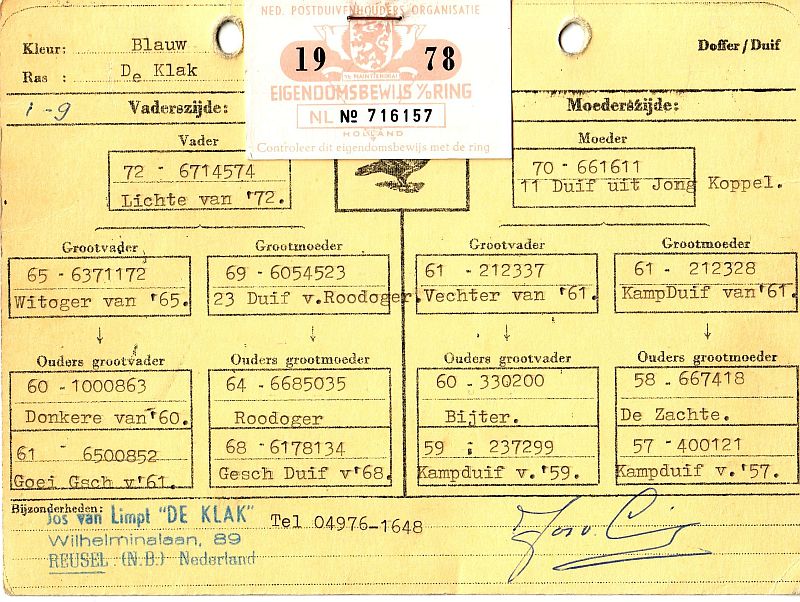 NED. POSTDUIVENHOUDERS ORGANISATIE
19 78
"JE MAINTIENDRAI"
EIGENDOMSBEWIJS V/D RING
NL № 716157
HOLLAND
Controleer dit eigendomsbewijs met de ring
Kleur: Blauw
Doffer / Duif
Ras : De Klak
1-9
Vaderszijde:
Moederszijde:
Vader
Moeder
72 - 6714574
Lichte van '72.
70 - 661611
11 Duif uit Jong Koppel.
Grootvader
Grootmoeder
Grootvader
Grootmoeder
65 - 6371172
Witoger van '65.
69 - 6054523
23 Duif v.Roodoger.
61 - 212337
Vechter van '61.
61 - 212328
KampDuif van '61.
Ouders grootvader
Ouders grootmoeder
Ouders grootvader
Ouders grootmoeder
60 - 1000863
Donkere van '60.
61 - 6500852
Goei Gsch v'61.
64 - 6685035
Roodoger
68 - 6178134
Gesch Duif v'68.
60 - 330200
Bijter.
59 : 237299
Kampduif v. '59.
58 - 667418
De Zachte.
57 - 400121
Kampduif v. '57.
Bijzonderheden:
Jos van Limpt "DE KLAK"
Tel 04976-1648
Wilhelminalaan, 89
REUSEL (N.B.) Nederland